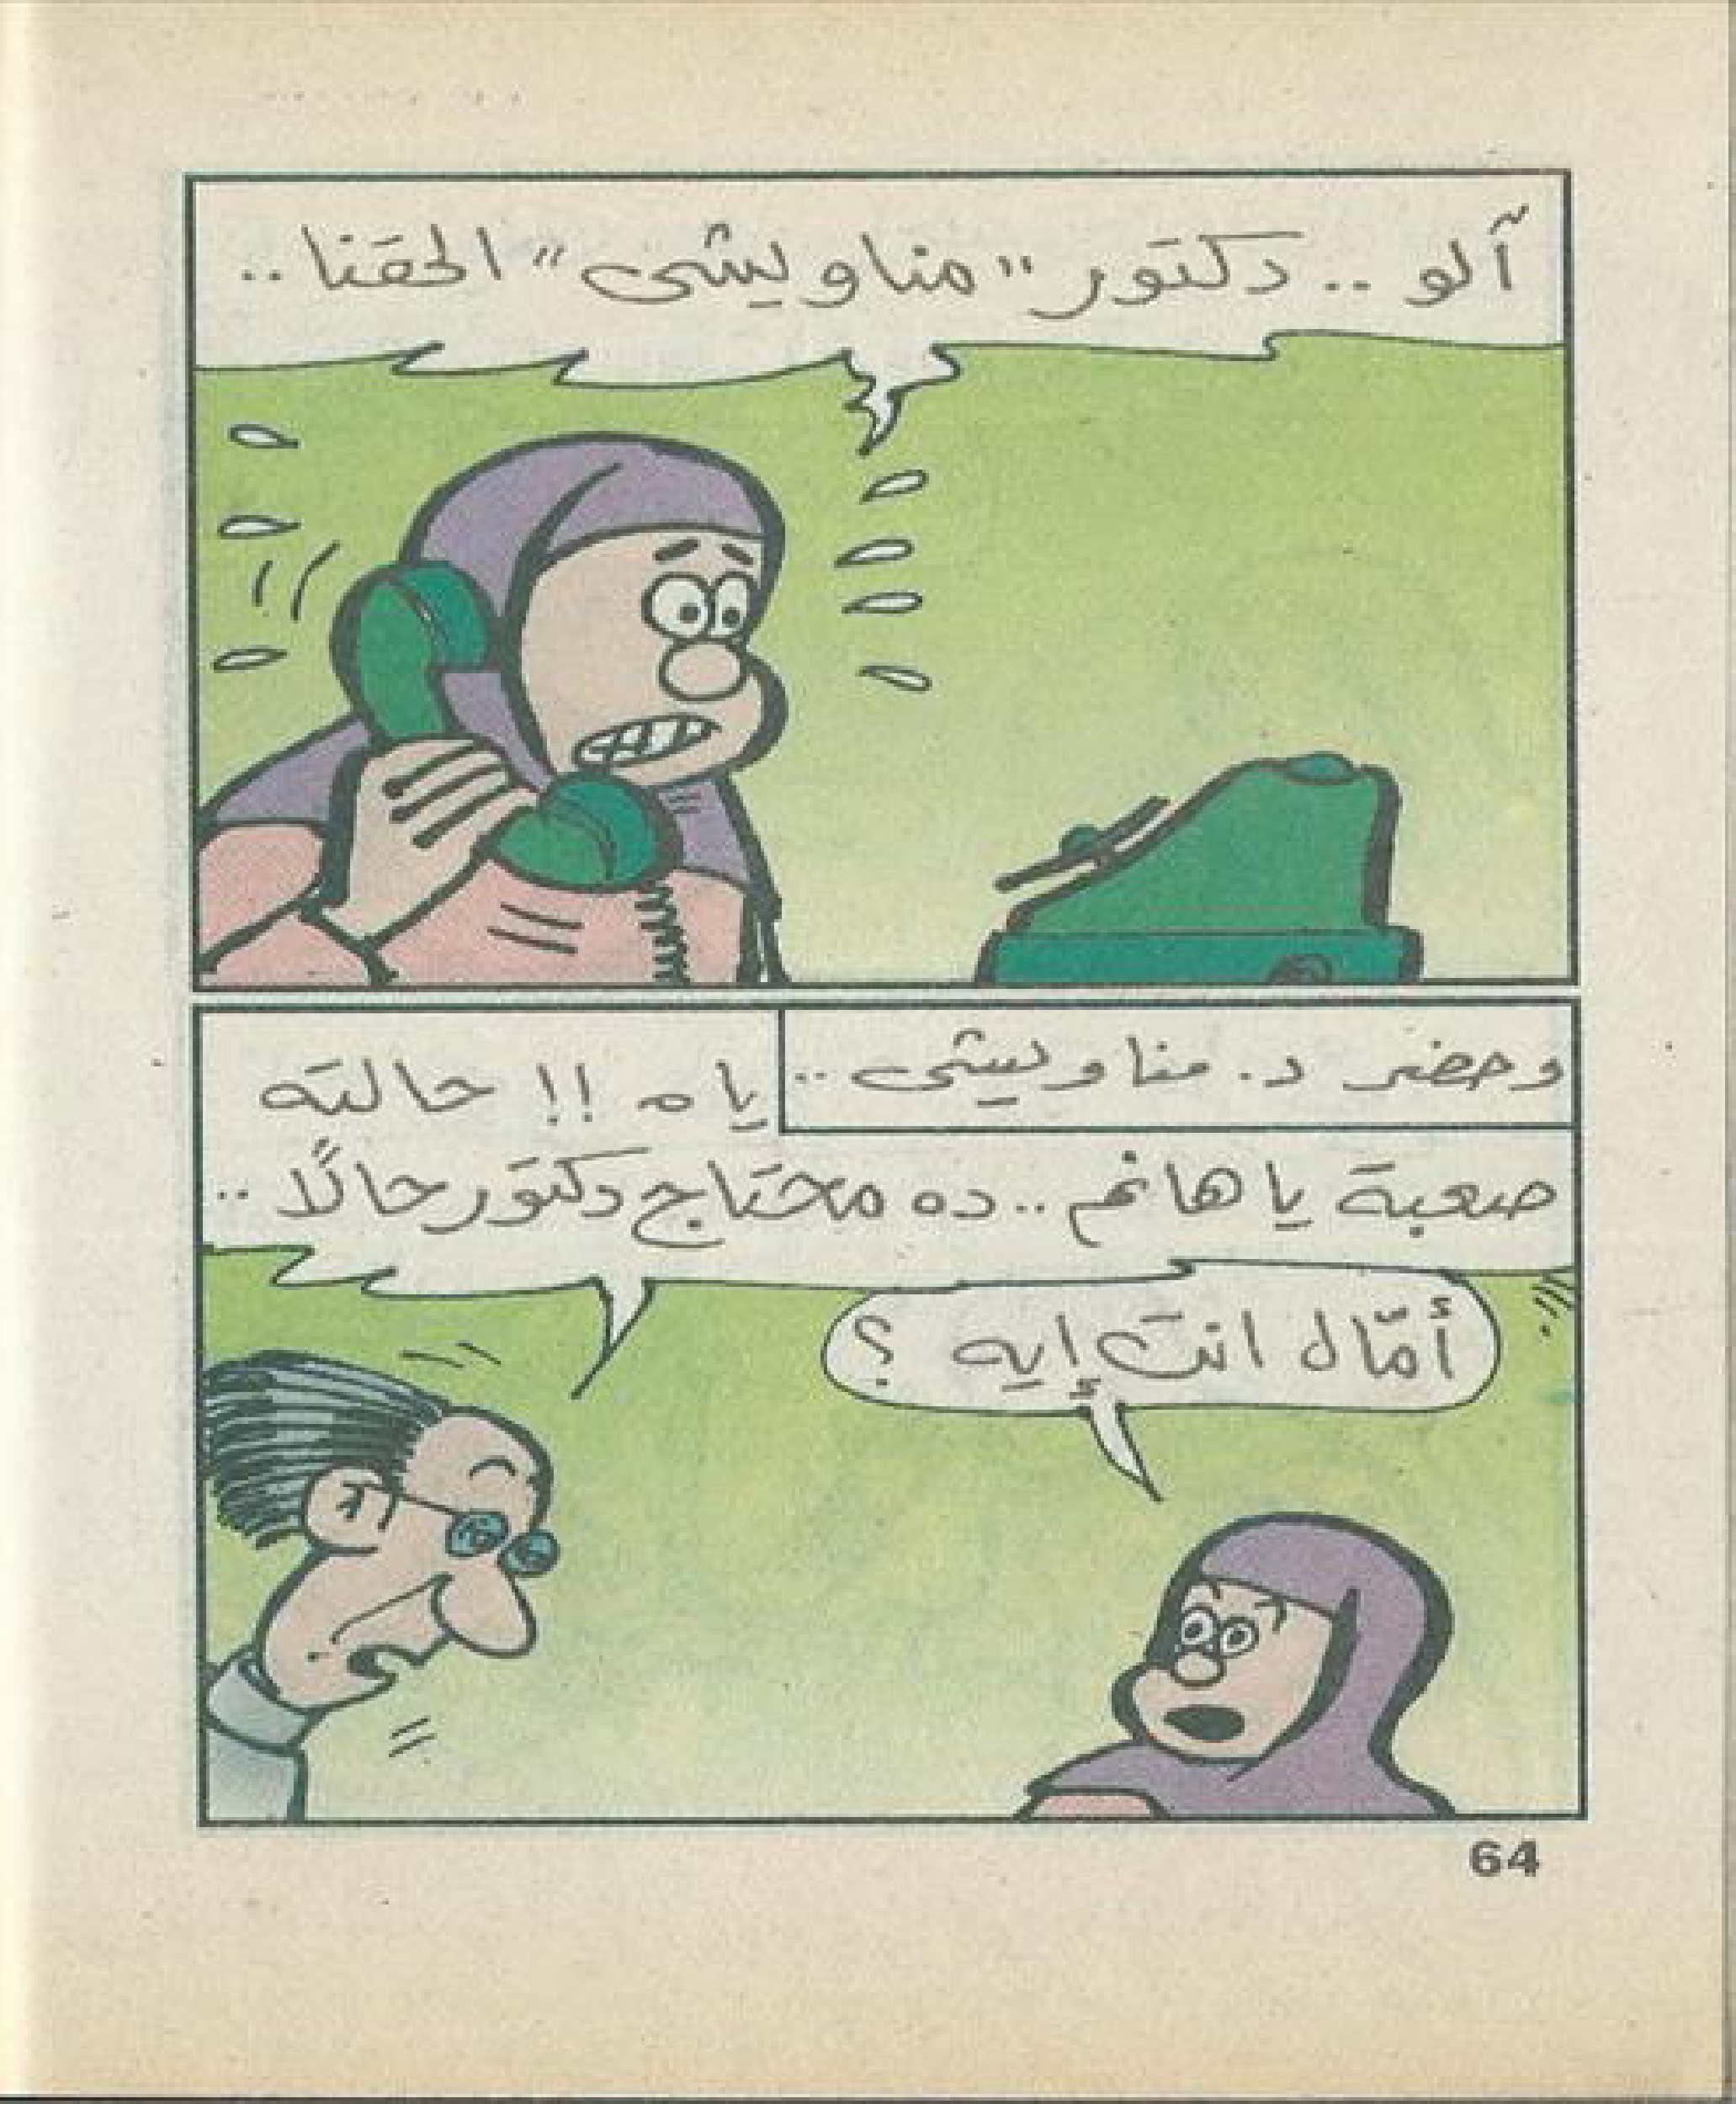 آلو .. دكتور "مناويشى" الحقنا ..
وحضر د. مناويشى ..
ياه !! حالته
صعبة يا هانم .. ده محتاج دكتور حالًا ..
أمّال انت إيه ؟
64